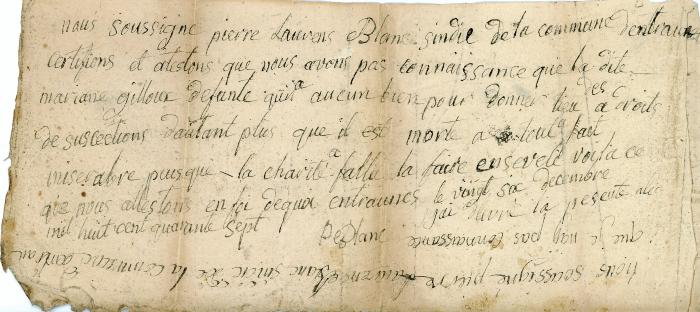 nous soussigné pierre Laurens Blanc sindic de la commune dentraunes
certifions et atestons que nous avons pas connaissance que la dite
mariane gilloux defunte qui a aucun bien pour donner lieu a des droits
de suscections dautant plus que il est morte a tout fait
miserable puisque la charite a fallu la faire enseveli voila ce
que nous attestons en foi de quoi entraunes le vingt six decembre
mil huit cent quarante sept PBlanc jai livré la presente
que je nai pas connaissance
nous soussigné pierre Laurens Blanc sindic de la commune dentraunes